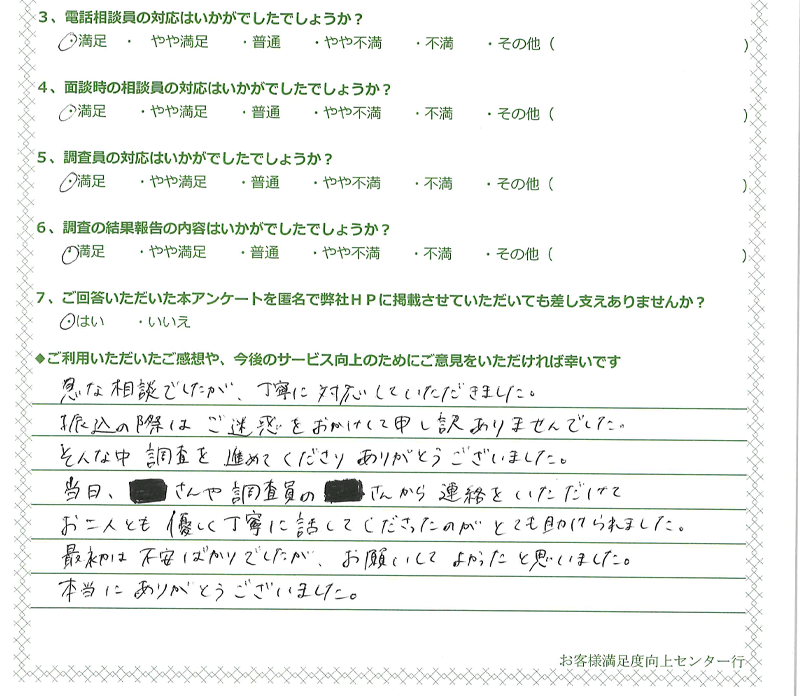 3、電話相談員の対応はいかがでしたでしょうか？
・満足 ・ やや満足 ・普通 ・やや不満 ・不満 ・その他（ ）
4、面談時の相談員の対応はいかがでしたでしょうか？
・満足 ・やや満足 ・普通 ・やや不満 ・不満 ・その他（ ）
5、調査員の対応はいかがでしたでしょうか？
・満足 ・やや満足 ・普通 ・やや不満 ・不満 ・その他（ ）
6、調査の結果報告の内容はいかがでしたでしょうか？
・満足 ・やや満足 ・普通 ・やや不満 ・不満 ・その他（ ）
7、ご回答いただいた本アンケートを匿名で弊社ＨＰに掲載させていただいても差し支えありませんか？
・はい ・いいえ
◆ご利用いただいたご感想や、今後のサービス向上のためにご意見をいただければ幸いです
急な相談でしたが、丁寧に対応していただきました。
振込の際はご迷惑をおかけして申し訳ありませんでした。
そんな中調査を進めてくださりありがとうございました。
当日、さんや調査員のさんから連絡をいただけて
お二人とも優しく丁寧に話してくださったのがとても助けられました。
最初は不安ばかりでしたが、お願いしてよかったと思いました。
本当にありがとうございました。
お客様満足度向上センター行